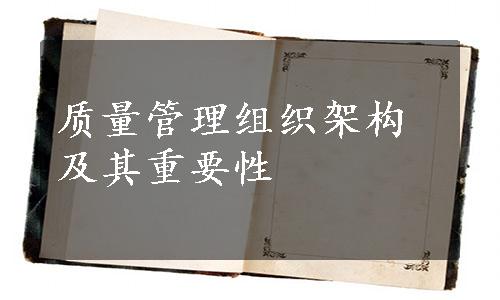 质量管理组织架构
及其重要性